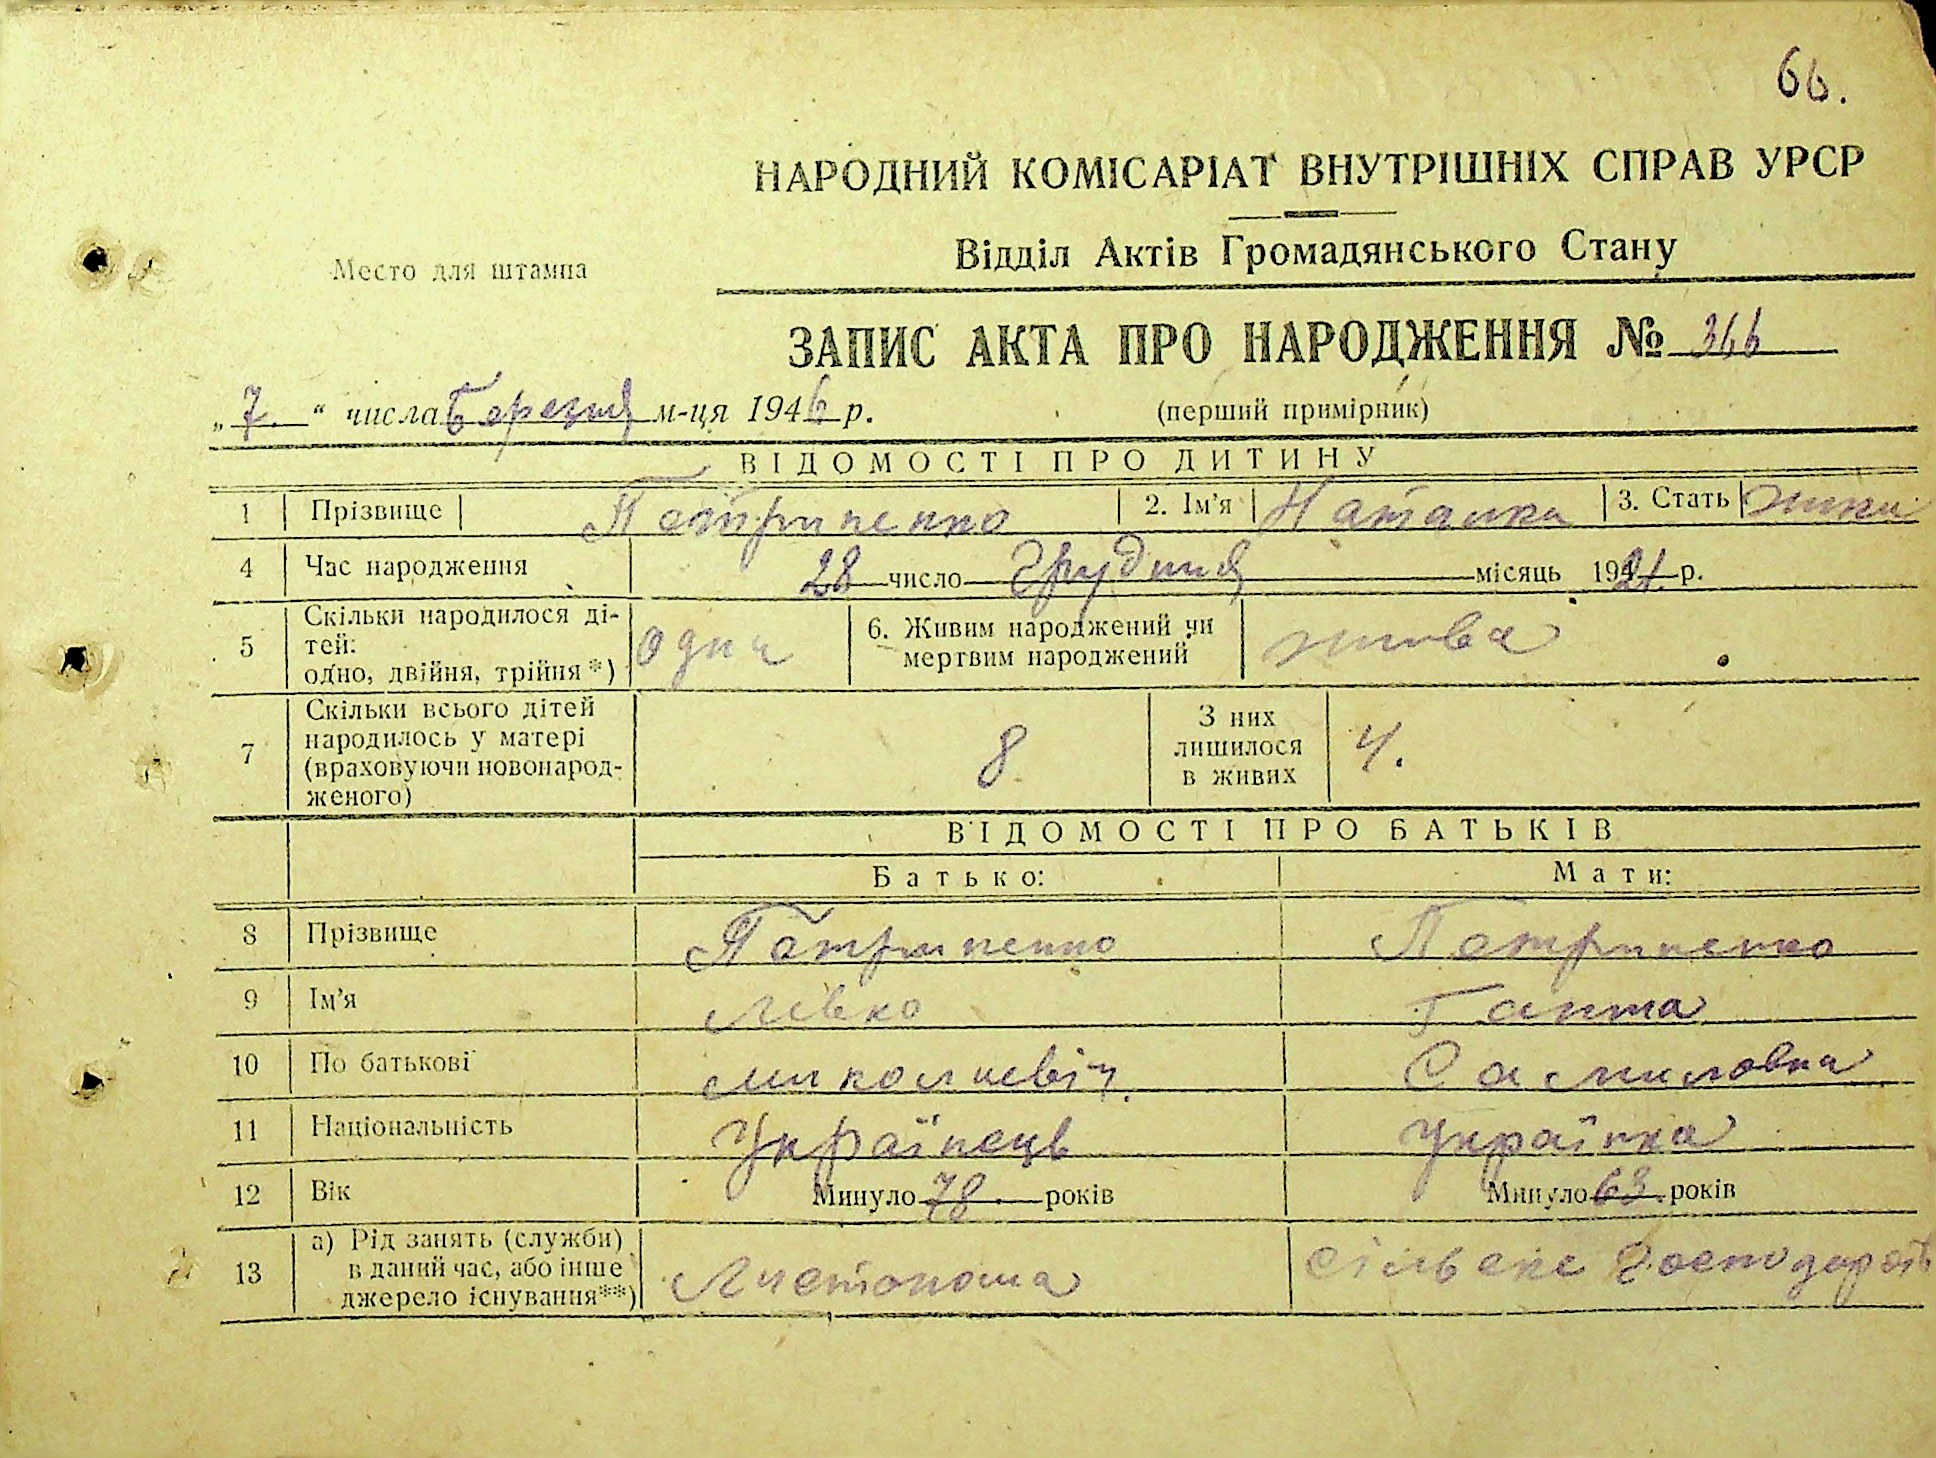 66.
НАРОДНИЙ КОМІСАРІАТ ВНУТРІШНІХ СПРАВ УРСР
Відділ Актів Громадянського Стану
Место для штампа
ЗАПИС АКТА ПРО НАРОДЖЕННЯ № 366
„7.“ числа Березня м-ця 1946 р. (перший примірник)
ВІДОМОСТІ ПРО ДИТИНУ
1 Прізвище Петриченко 2. Ім'я Наталка 3. Стать жіноч
4 Час народження 28 число Грудня місяць 1921 р.
5 Скільки народилося ді-
тей:
одно, двійня, трійня*) одна
6. Живим народжений чи
мертвим народжений жива
7 Скільки всього дітей
народилось у матері
(враховуючи новонарод-
женого) 8
З них
лишилося
в живих 4.
ВІДОМОСТІ ПРО БАТЬКІВ
Батько: Мати:
8 Прізвище Петриченко Петриченко
9 Ім'я Левко Ганна
10 По батькові Миколаєвіч Самиловна
11 Національність Українець Українка
12 Вік Минуло 78 років Минуло 63 років
13 а) Рід занять (служби)
в даний час, або інше
джерело існування**) Листоноша сільське господарств